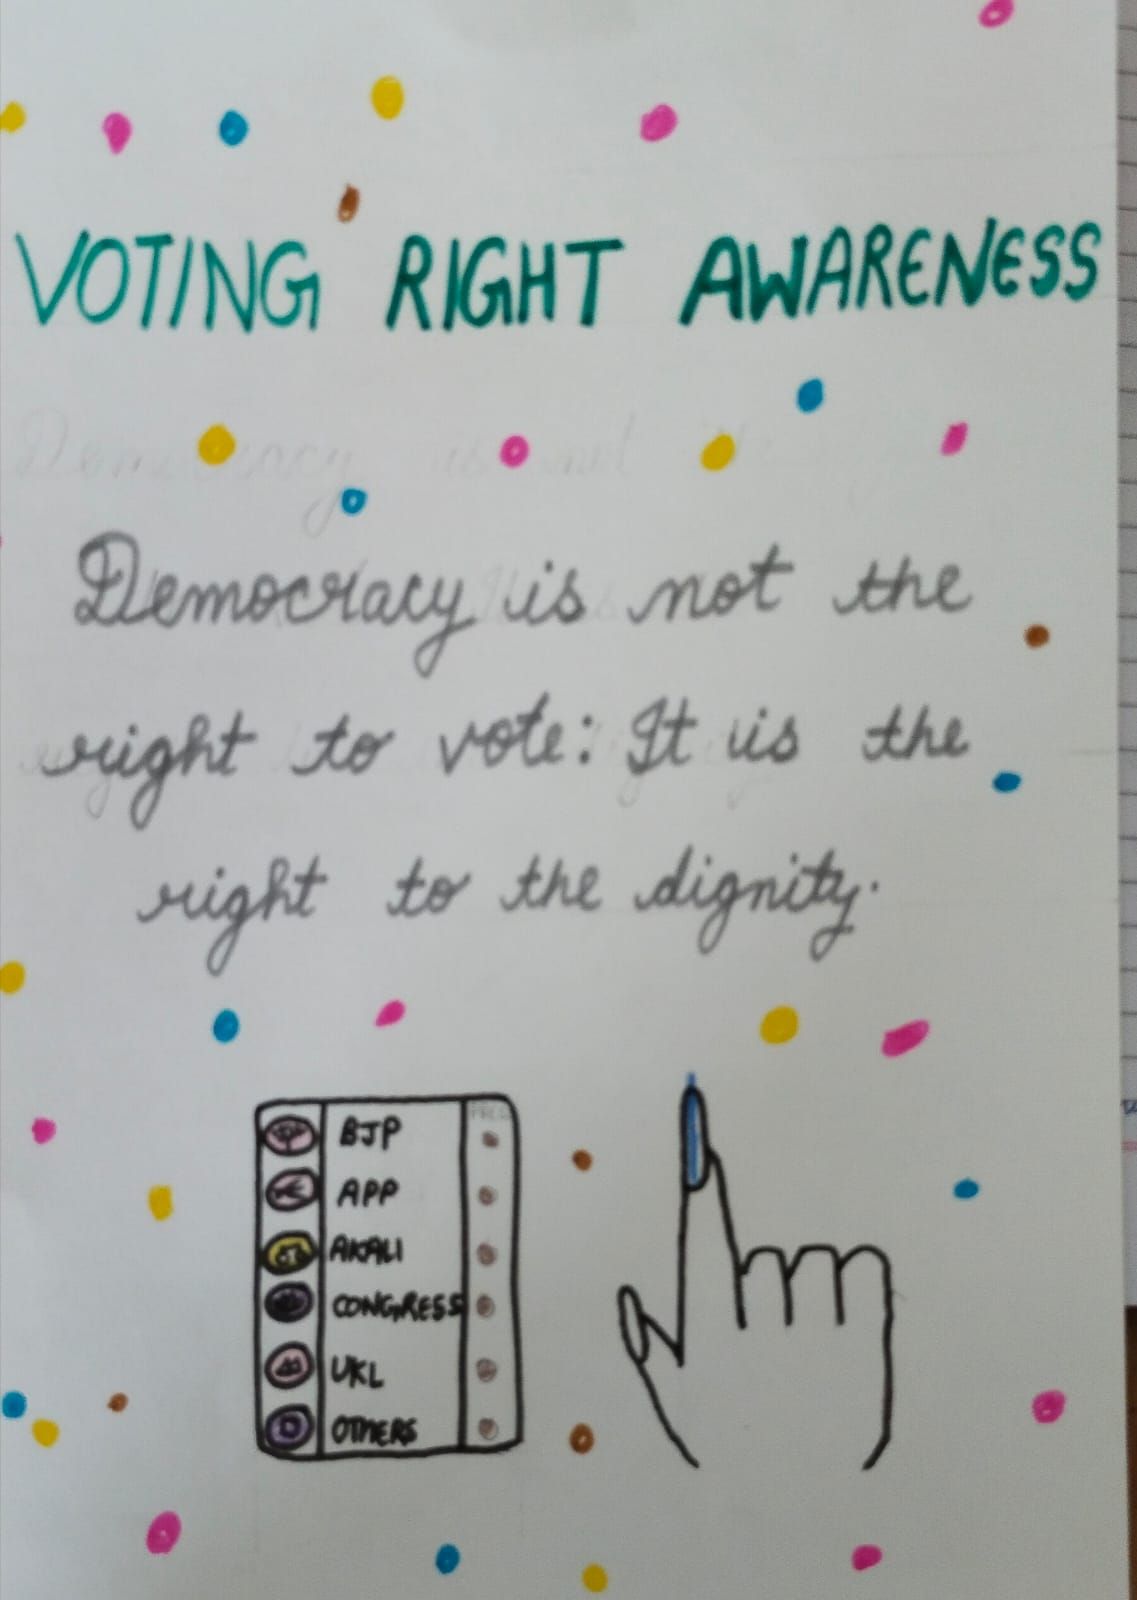 VOTING RIGHT AWARENESS
Democracy is not the
right to vote: It is the
right to the dignity.
BJP
APP
AKALI
CONGRESS
UKL
OTHERS